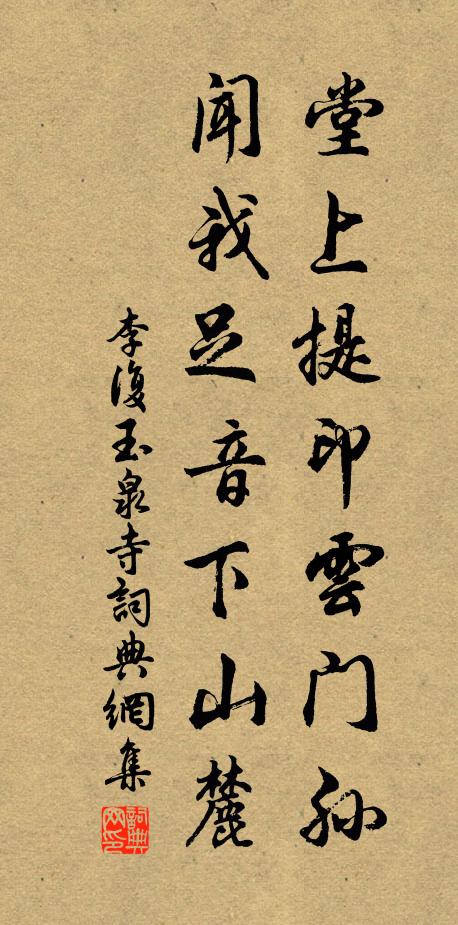 堂上提印雲门孙
闻我足音下山麓
李復玉泉寺詞典網集
詞典网印